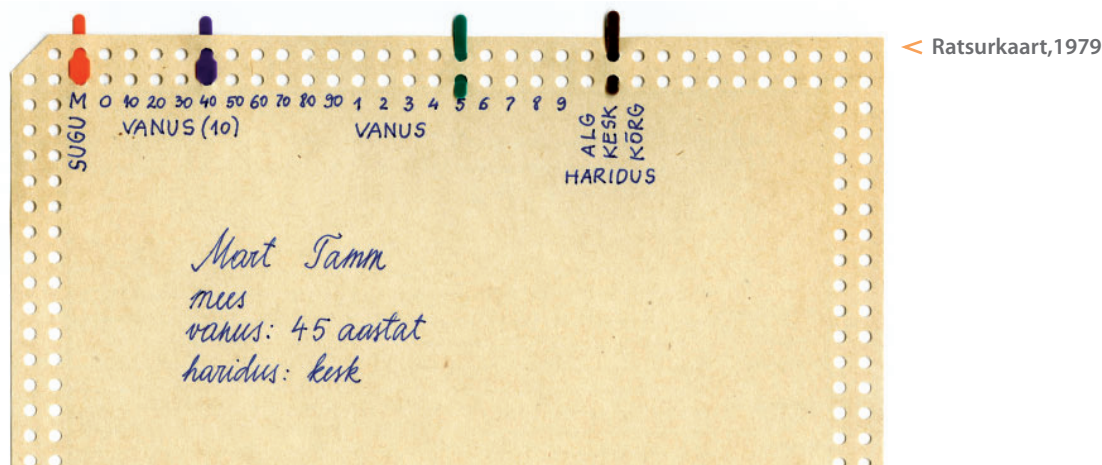 < Ratsurkaart,1979
M 0 10 20 30 40 50 60 70 80 90 1 2 3 4 5 6 7 8 9
SUGU
VANUS (10)
VANUS
ALG
KESK
KÕRG
HARIDUS
Mart Tamm
mees
vanus: 45 aastat
haridus: kesk